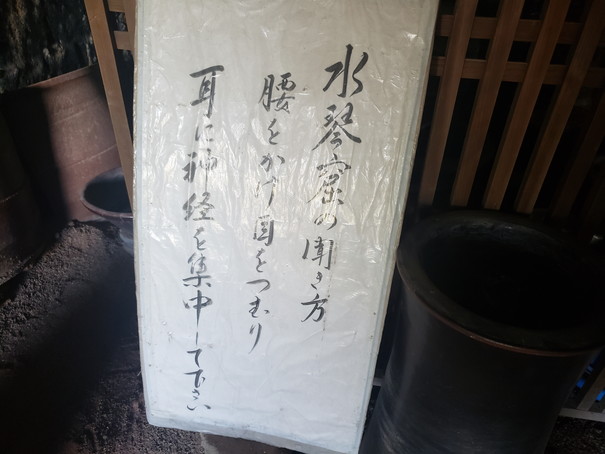 水琴窟の聞き方
腰をかけ目をつむり
耳に神経を集中して下さい